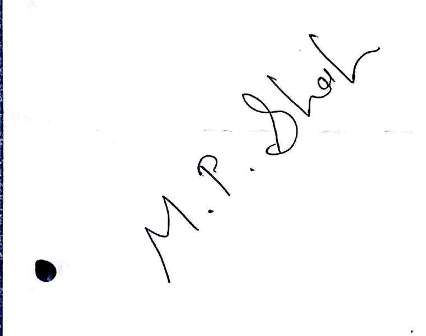 M. P. Shah